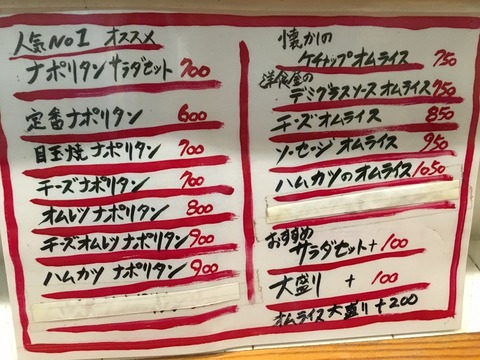 人気No1 オススメ
ナポリタン サラダセット 700
定番ナポリタン 600
目玉焼ナポリタン 700
チーズナポリタン 700
オムレツナポリタン 800
チーズオムレツナポリタン 900
ハムカツ ナポリタン 900
懐かしの
ケチャップオムライス 750
洋食屋の
デミグラスソースオムライス 750
チーズオムライス 850
ソーセージオムライス 950
ハムカツのオムライス 1050
おすすめ
サラダセット+100
大盛り +100
オムライス大盛り+200